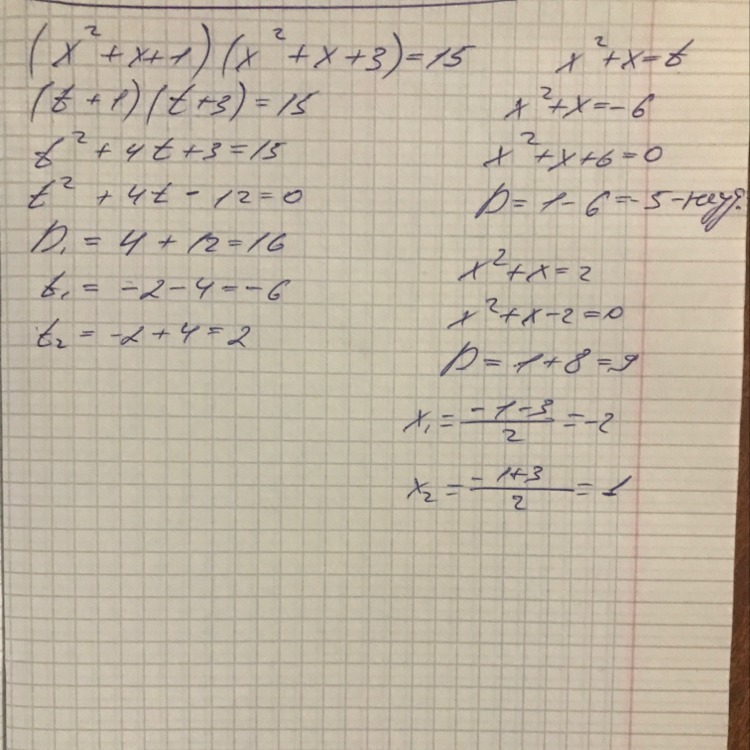 (x² + x + 1)(x² + x + 3) = 15
(t + 1)(t + 3) = 15
t² + 4t + 3 = 15
t² + 4t - 12 = 0
D₁ = 4 + 12 = 16
t₁ = -2 - 4 = -6
t₂ = -2 + 4 = 2
x² + x = t
x² + x = -6
x² + x + 6 = 0
D = 1 - 6 = -5 -
x² + x = 2
x² + x - 2 = 0
D = 1 + 8 = 9
x₁ = (-1-3)/2 = -2
x₂ = (-1+3)/2 = 1